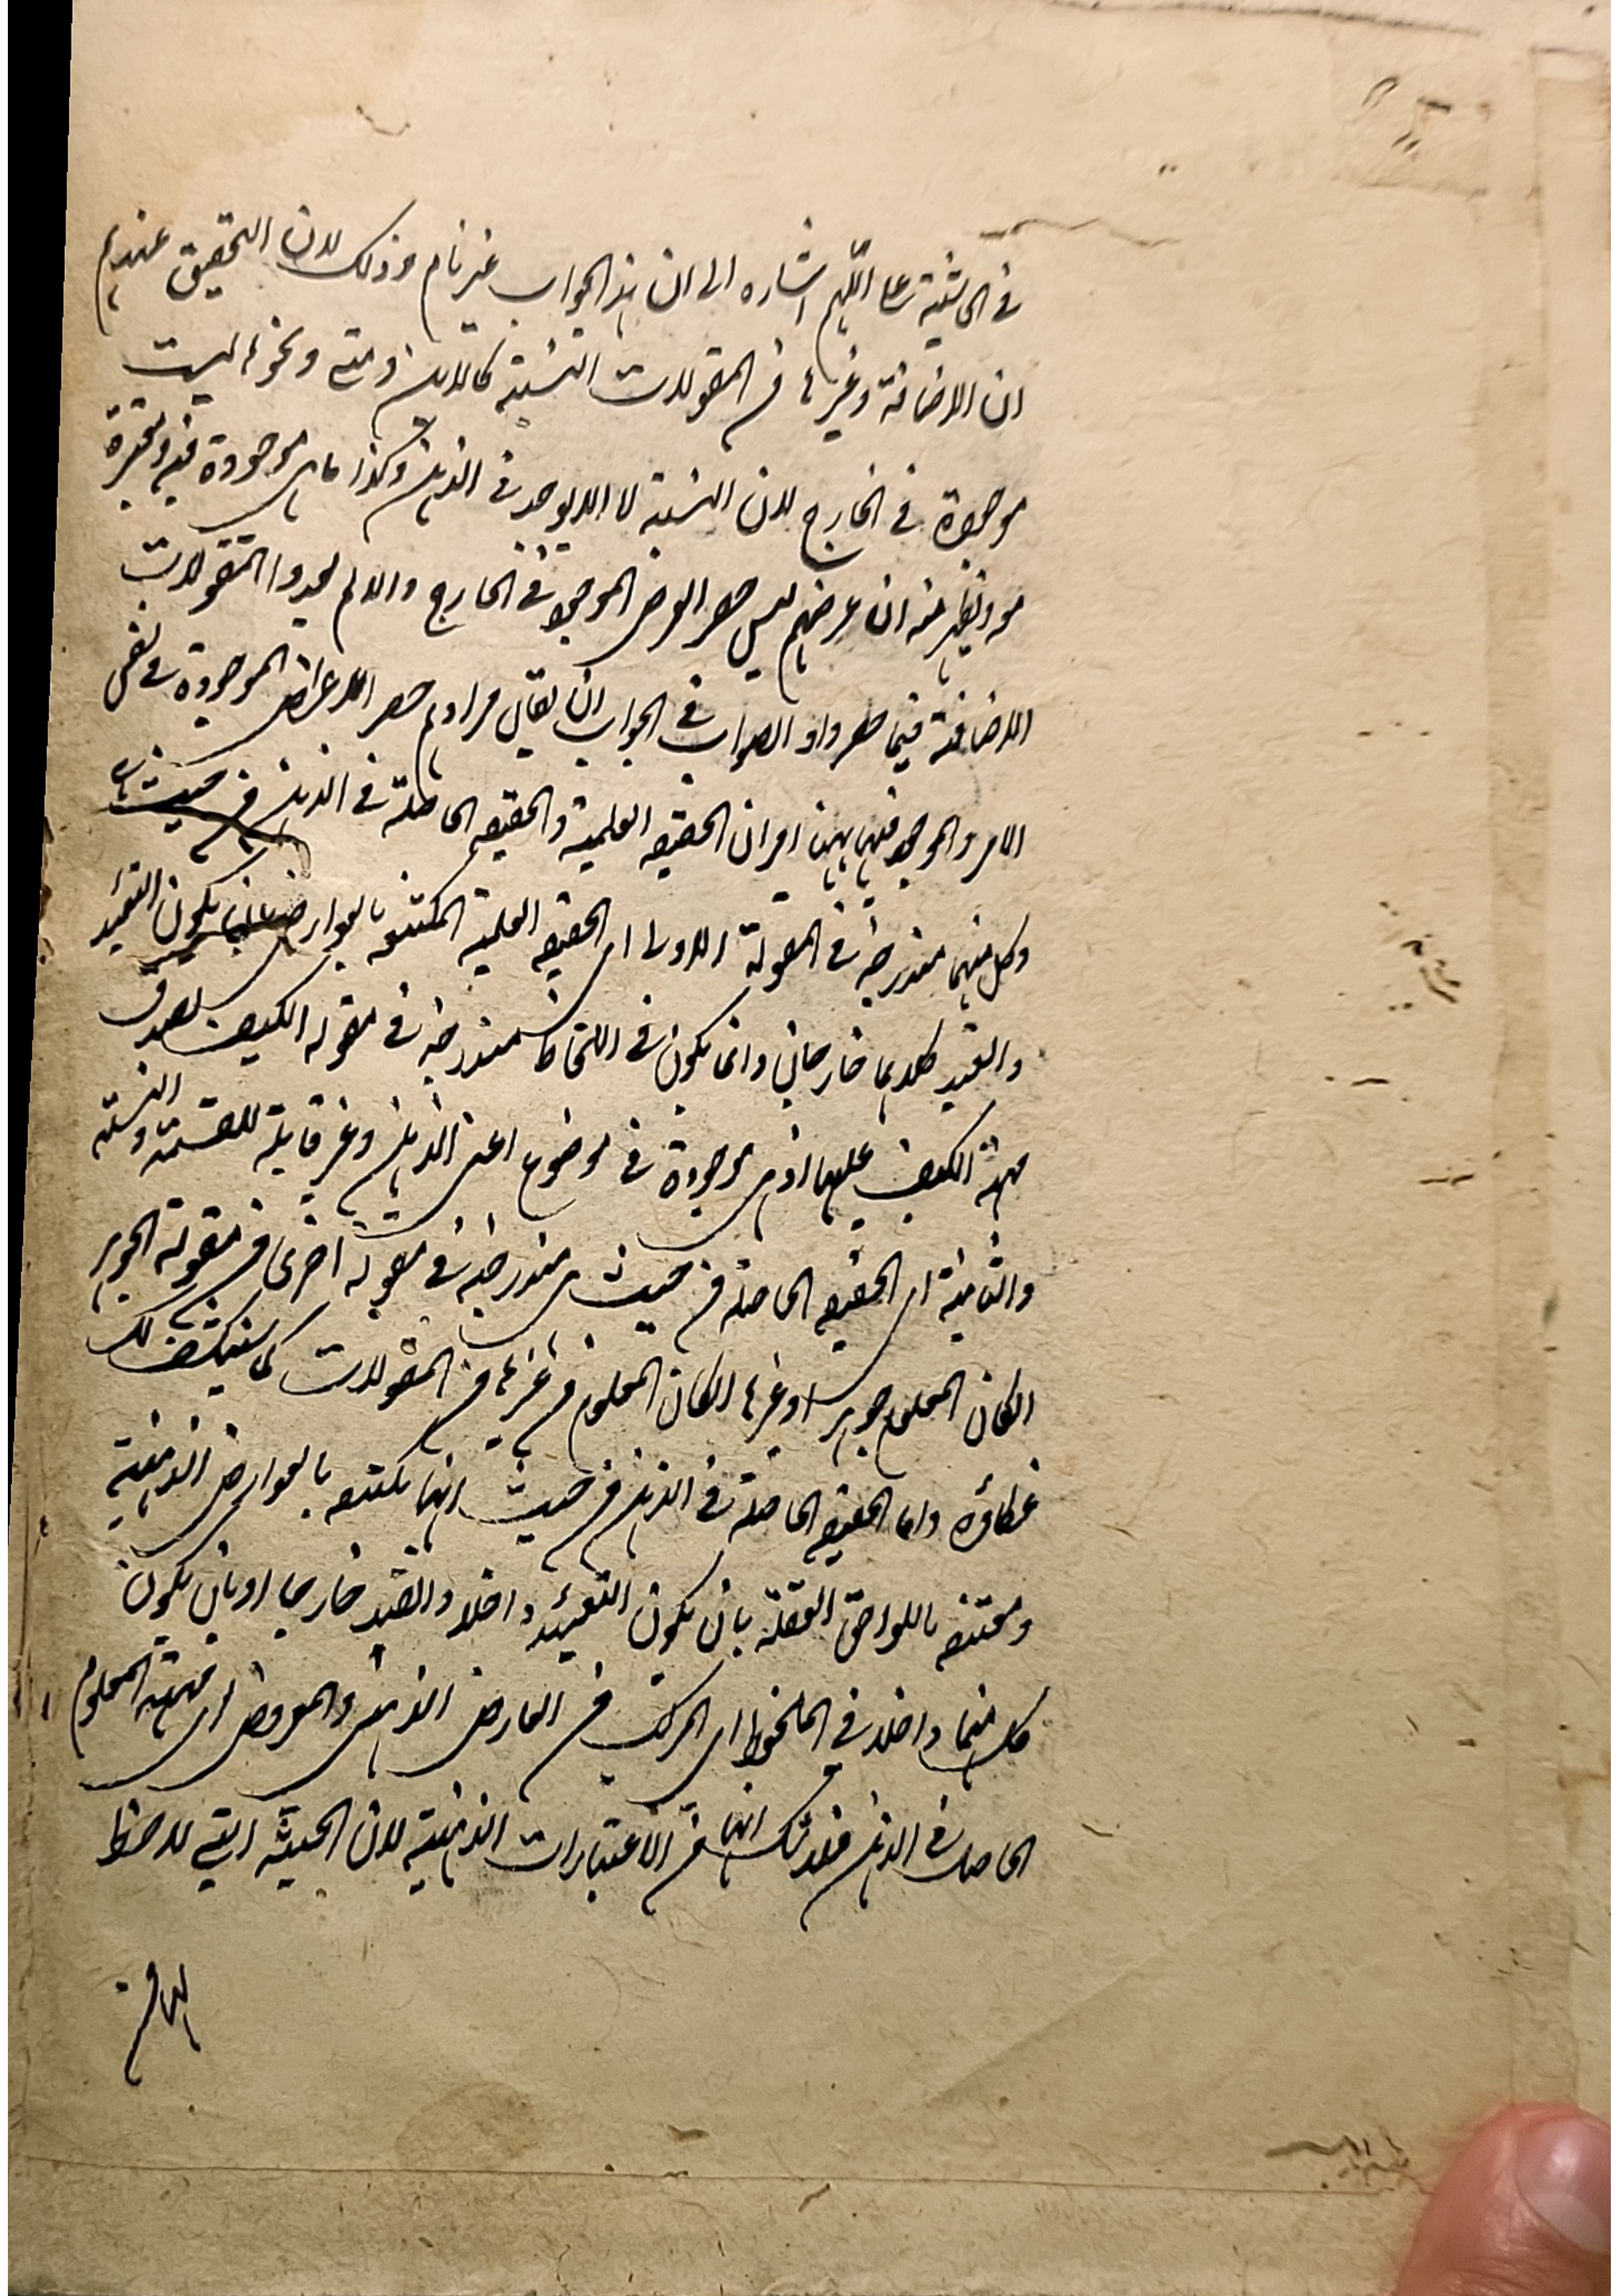 في الحاشية على اللهم اشاره الى ان هذا الجواب غير تام وذلك لان التحقيق عندهم
ان الاضافة وغيرها من المقولات النسبية كالاين ومتى ونحوها ليست
موجودة في الخارج لان النسبة لا توجد في الذهن وكذا ما هي موجودة فيه
منه ان غرضهم ليس حصر العرض الموجود في الخارج والا لم يعدوا المقولات
الاضافة فيما حصروا والصواب في الجواب ان يقال مرادهم حصر الاعراض الموجودة في نفس
الامر والموجود فيها ههنا امران الحقيقه العلمية والحقيقه الحاصلة في الذهن من حيث هي
وكل منهما مندرجة في المقولة الاولى اى الحقيقه العلمية المكتنفه بالعوارض بان يكون التقييد
والقيد كلاهما خارجان وانما يكون في اللحاظ مندرجة في مقوله الكيف لصدق
مهية الكيف عليها اذ هي موجودة في موضوع اعنى الذهن وغير قابلة للقسمة والنسبة
والثانية اى الحقيقه الحاصلة من حيث هي مندرجة في مقولة اخرى من مقولة الجوهر
ان كان المعلوم جوهرا وغيرها ان كان المعلوم من غيرها من المقولات كما سينكشف لك
غطاؤه واما الحقيقه الحاصلة في الذهن من حيث انها مكتنفه بالعوارض الذهنية
ومقترنه باللواحق العقلية بان يكون التقييد داخلا والقيد خارجا او بان يكون
كل منهما داخلا في الملحوظ اى المركب من العارض الذهنى والمعروض اى مهية المعلوم
الحاصلة في الذهن فلا شك انها من الاعتبارات الذهنية لان الحيثية التي لاحظ